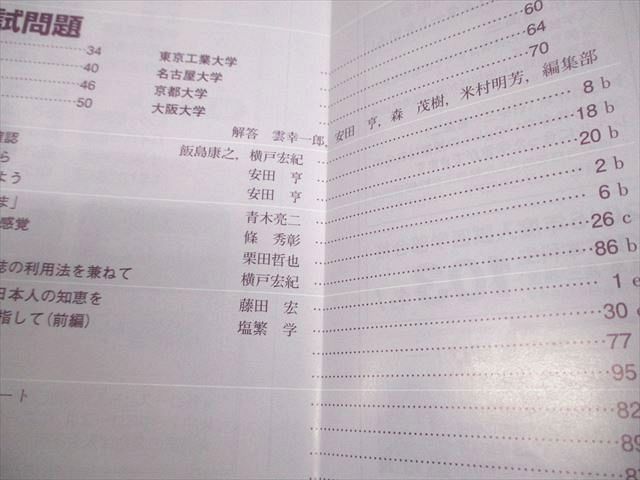 試問題
34 東京工業大学 60
40 名古屋大学 64
46 京都大学 70
50 大阪大学
解答 雲幸一郎,安田 亨,森 茂樹,米村明芳,編集部
確認 飯島康之,横戸宏紀 8 b
ら 安田 亨 18 b
よう 安田 亨 20 b
ま」 青木亮二 2 b
感覚 條 秀彰 6 b
栗田哲也 26 c
誌の利用法を兼ねて 横戸宏紀 86 b
日本人の知恵を 藤田 宏 1 e
指して(前編) 塩繁 学 30
77
95
ート 82
89